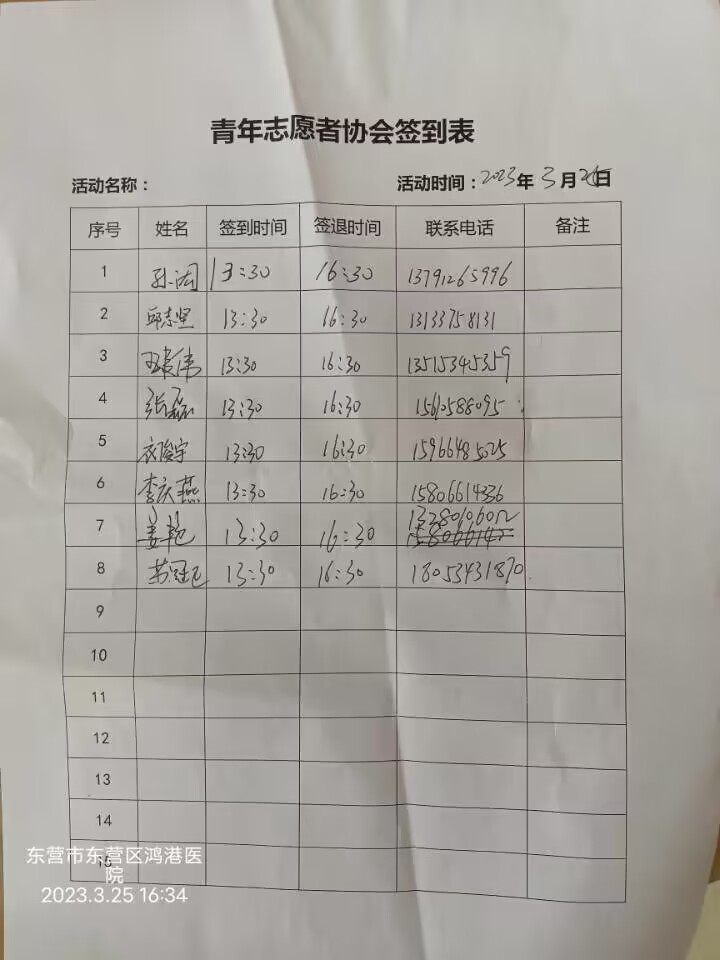 青年志愿者协会签到表
活动名称： 活动时间：2023年3月25日
序号 姓名 签到时间 签退时间 联系电话 备注
1 13:30 16:30 13791265996
2 邱志坚 13:30 16:30 13133758131
3 王建伟 13:30 16:30 13515345359
4 张磊 13:30 16:30 15610588095
5 衣俊宇 13:30 16:30 15966485025
6 李庆燕 13:30 16:30 15806614336
7 姜艳 13:30 16:30
8 13:30 16:30 18053431870
9
10
11
12
13
14
15
东营市东营区鸿港医
院
2023.3.25 16:34